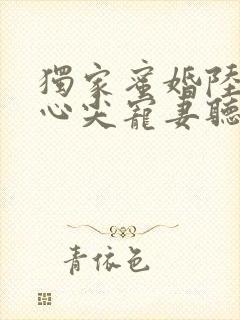 獨家蜜婚陸
心尖寵妻聽
青依色